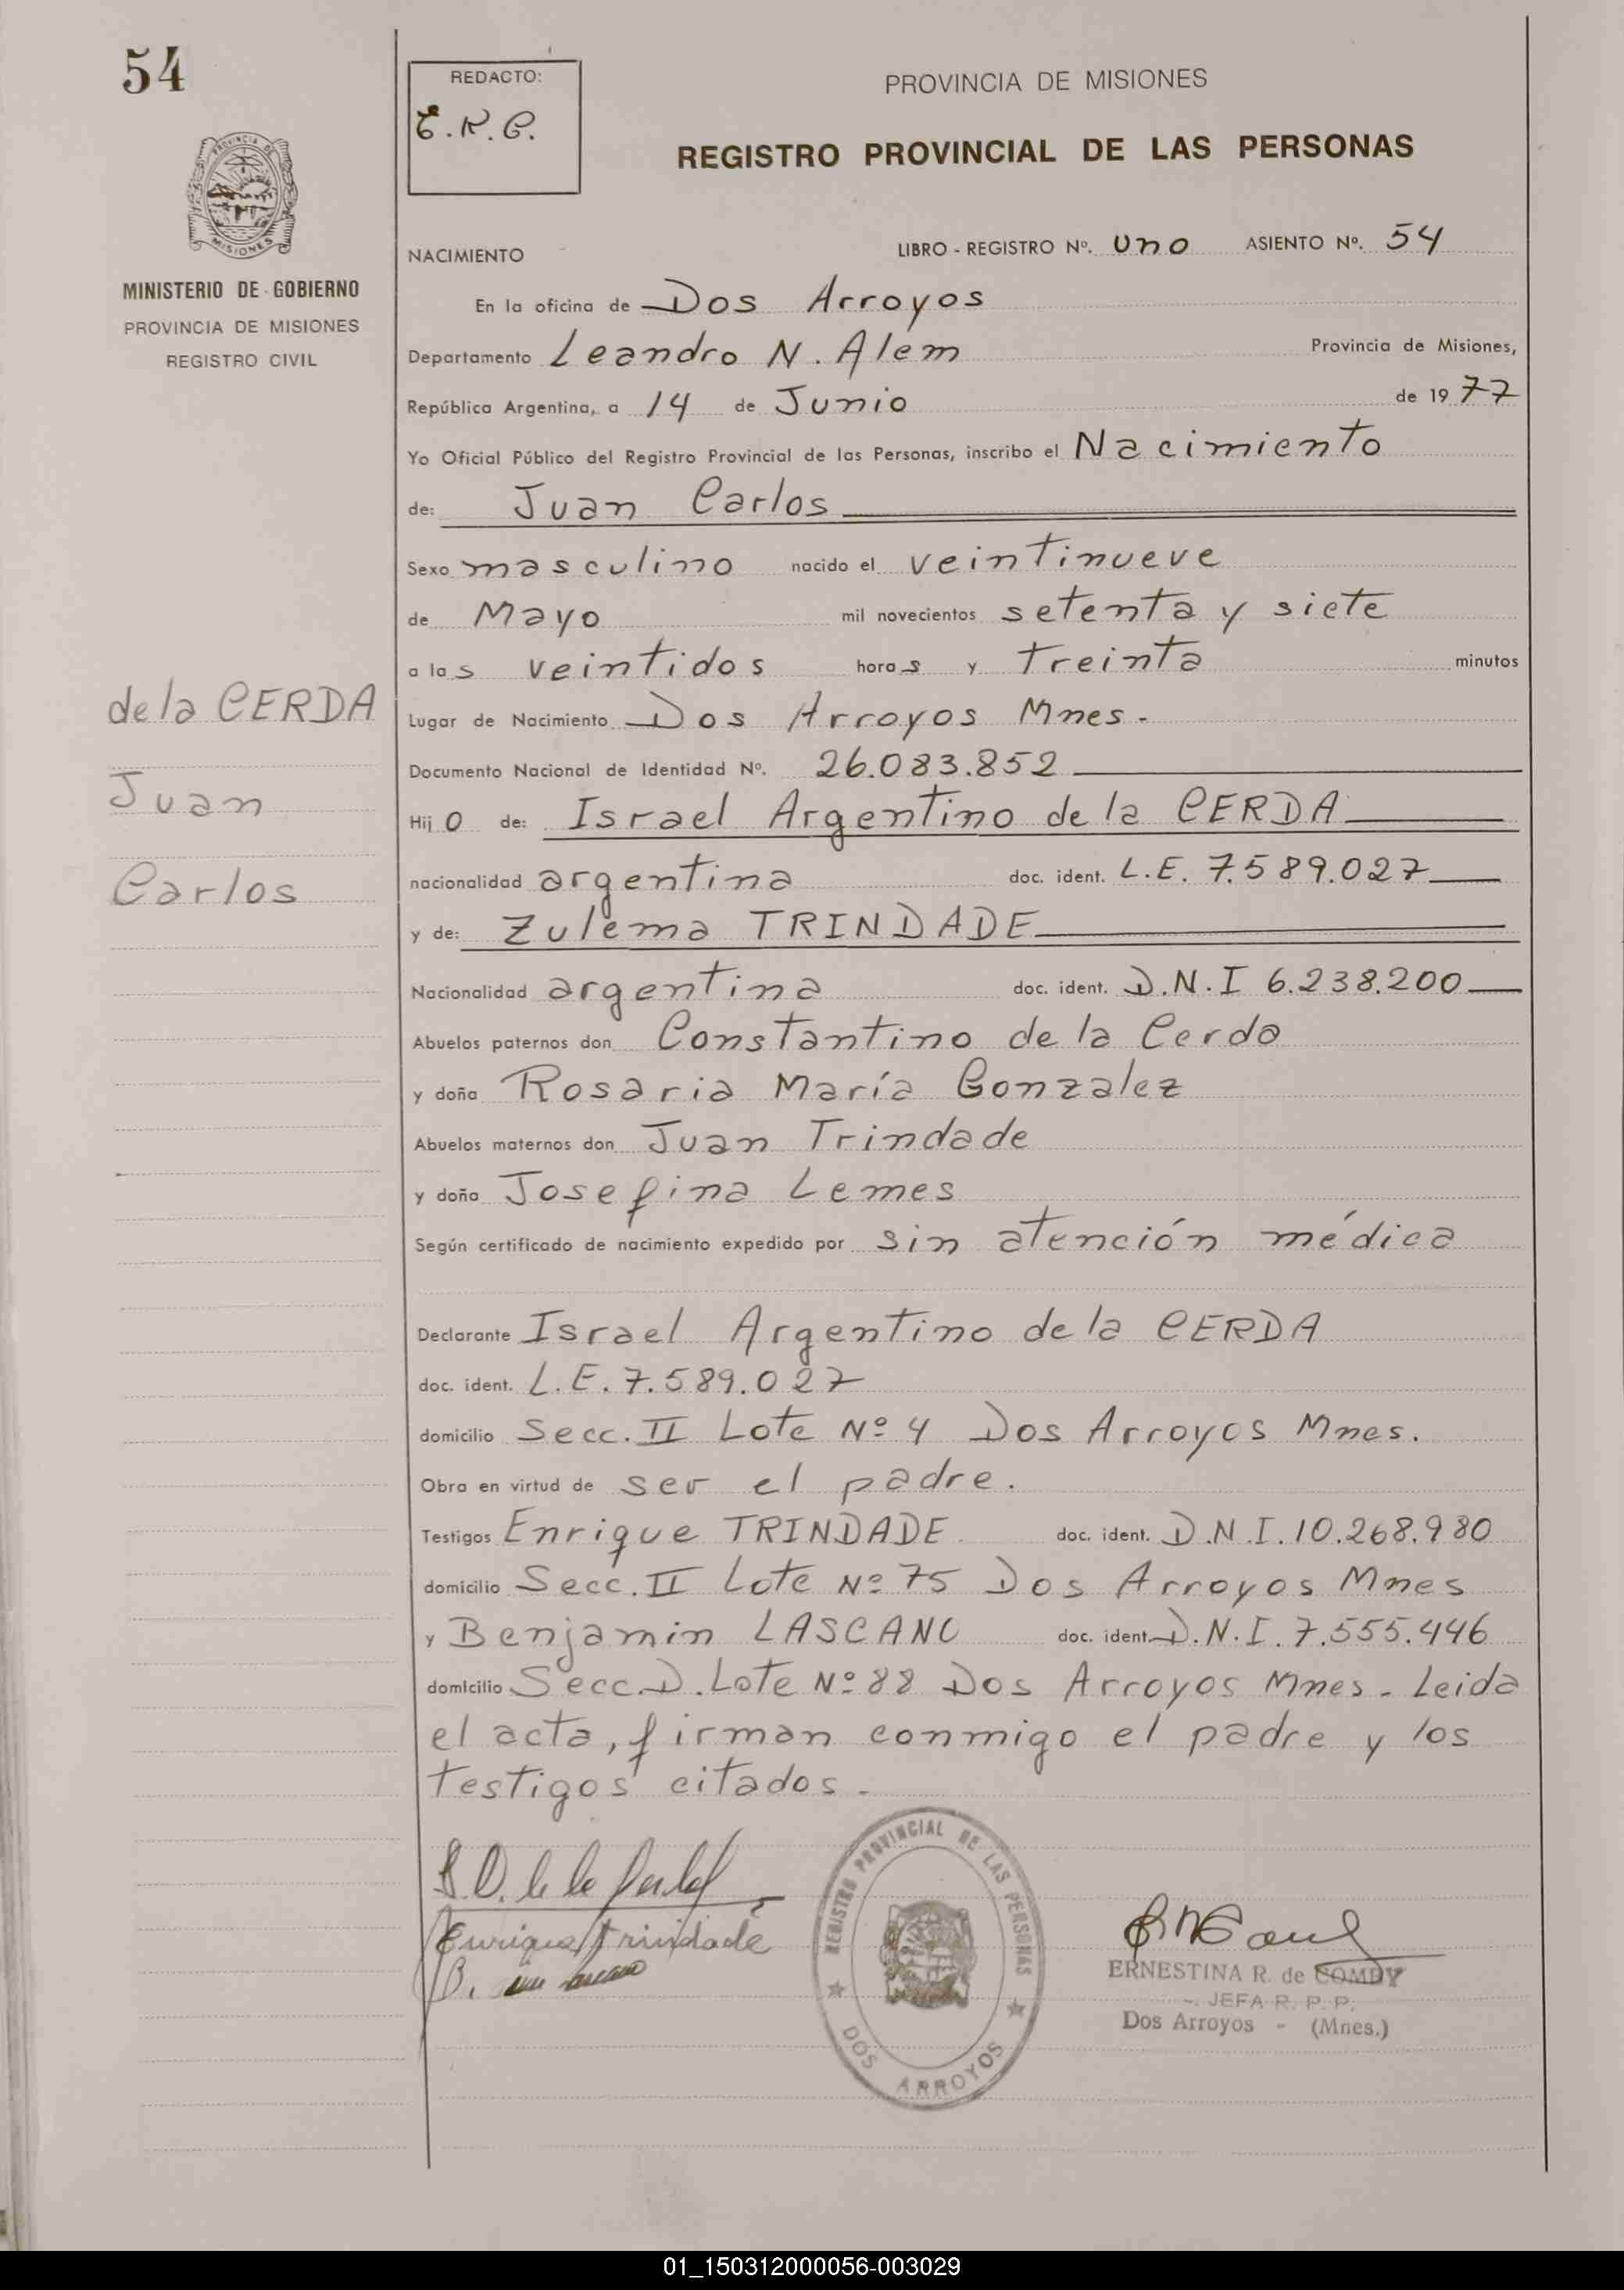 54
REDACTO:
E.R.C.
PROVINCIA DE MISIONES
REGISTRO PROVINCIAL DE LAS PERSONAS
PROVINCIA DE
MISIONES
MINISTERIO DE GOBIERNO
PROVINCIA DE MISIONES
REGISTRO CIVIL
NACIMIENTO LIBRO - REGISTRO Nº. uno ASIENTO Nº. 54
En la oficina de Dos Arroyos
Departamento Leandro N. Alem Provincia de Misiones,
República Argentina, a 14 de Junio de 1977
Yo Oficial Público del Registro Provincial de las Personas, inscribo el Nacimiento
de: Juan Carlos
Sexo masculino nacido el veintinueve
de Mayo mil novecientos setenta y siete
a las veintidos horas y treinta minutos
de la CERDA
Juan
Carlos
Lugar de Nacimiento Dos Arroyos Mnes.
Documento Nacional de Identidad Nº. 26.083.852
Hijo de: Israel Argentino de la CERDA
nacionalidad argentina doc. ident. L.E. 7.589.027
y de: Zulema TRINDADE
Nacionalidad argentina doc. ident. D.N.I 6.238.200
Abuelos paternos don Constantino de la Cerda
y doña Rosaria María Gonzalez
Abuelos maternos don Juan Trindade
y doña Josefina Lemes
Según certificado de nacimiento expedido por sin atención médica
Declarante Israel Argentino de la CERDA
doc. ident. L.E. 7.589.027
domicilio Secc. II Lote Nº 4 Dos Arroyos Mnes.
Obra en virtud de ser el padre.
Testigos Enrique TRINDADE doc. ident. D.N.I. 10.268.980
domicilio Secc. II Lote Nº 75 Dos Arroyos Mnes
y Benjamin LASCANO doc. ident. D.N.I. 7.555.446
domicilio Secc. D. Lote Nº 88 Dos Arroyos Mnes. Leida
el acta, firman conmigo el padre y los
testigos citados.
Enrique Trindade
REGISTRO PROVINCIAL DE LAS PERSONAS
DOS ARROYOS
ERNESTINA R. de COMBY
JEFA R. P. P.
Dos Arroyos - (Mnes.)
01_150312000056-003029